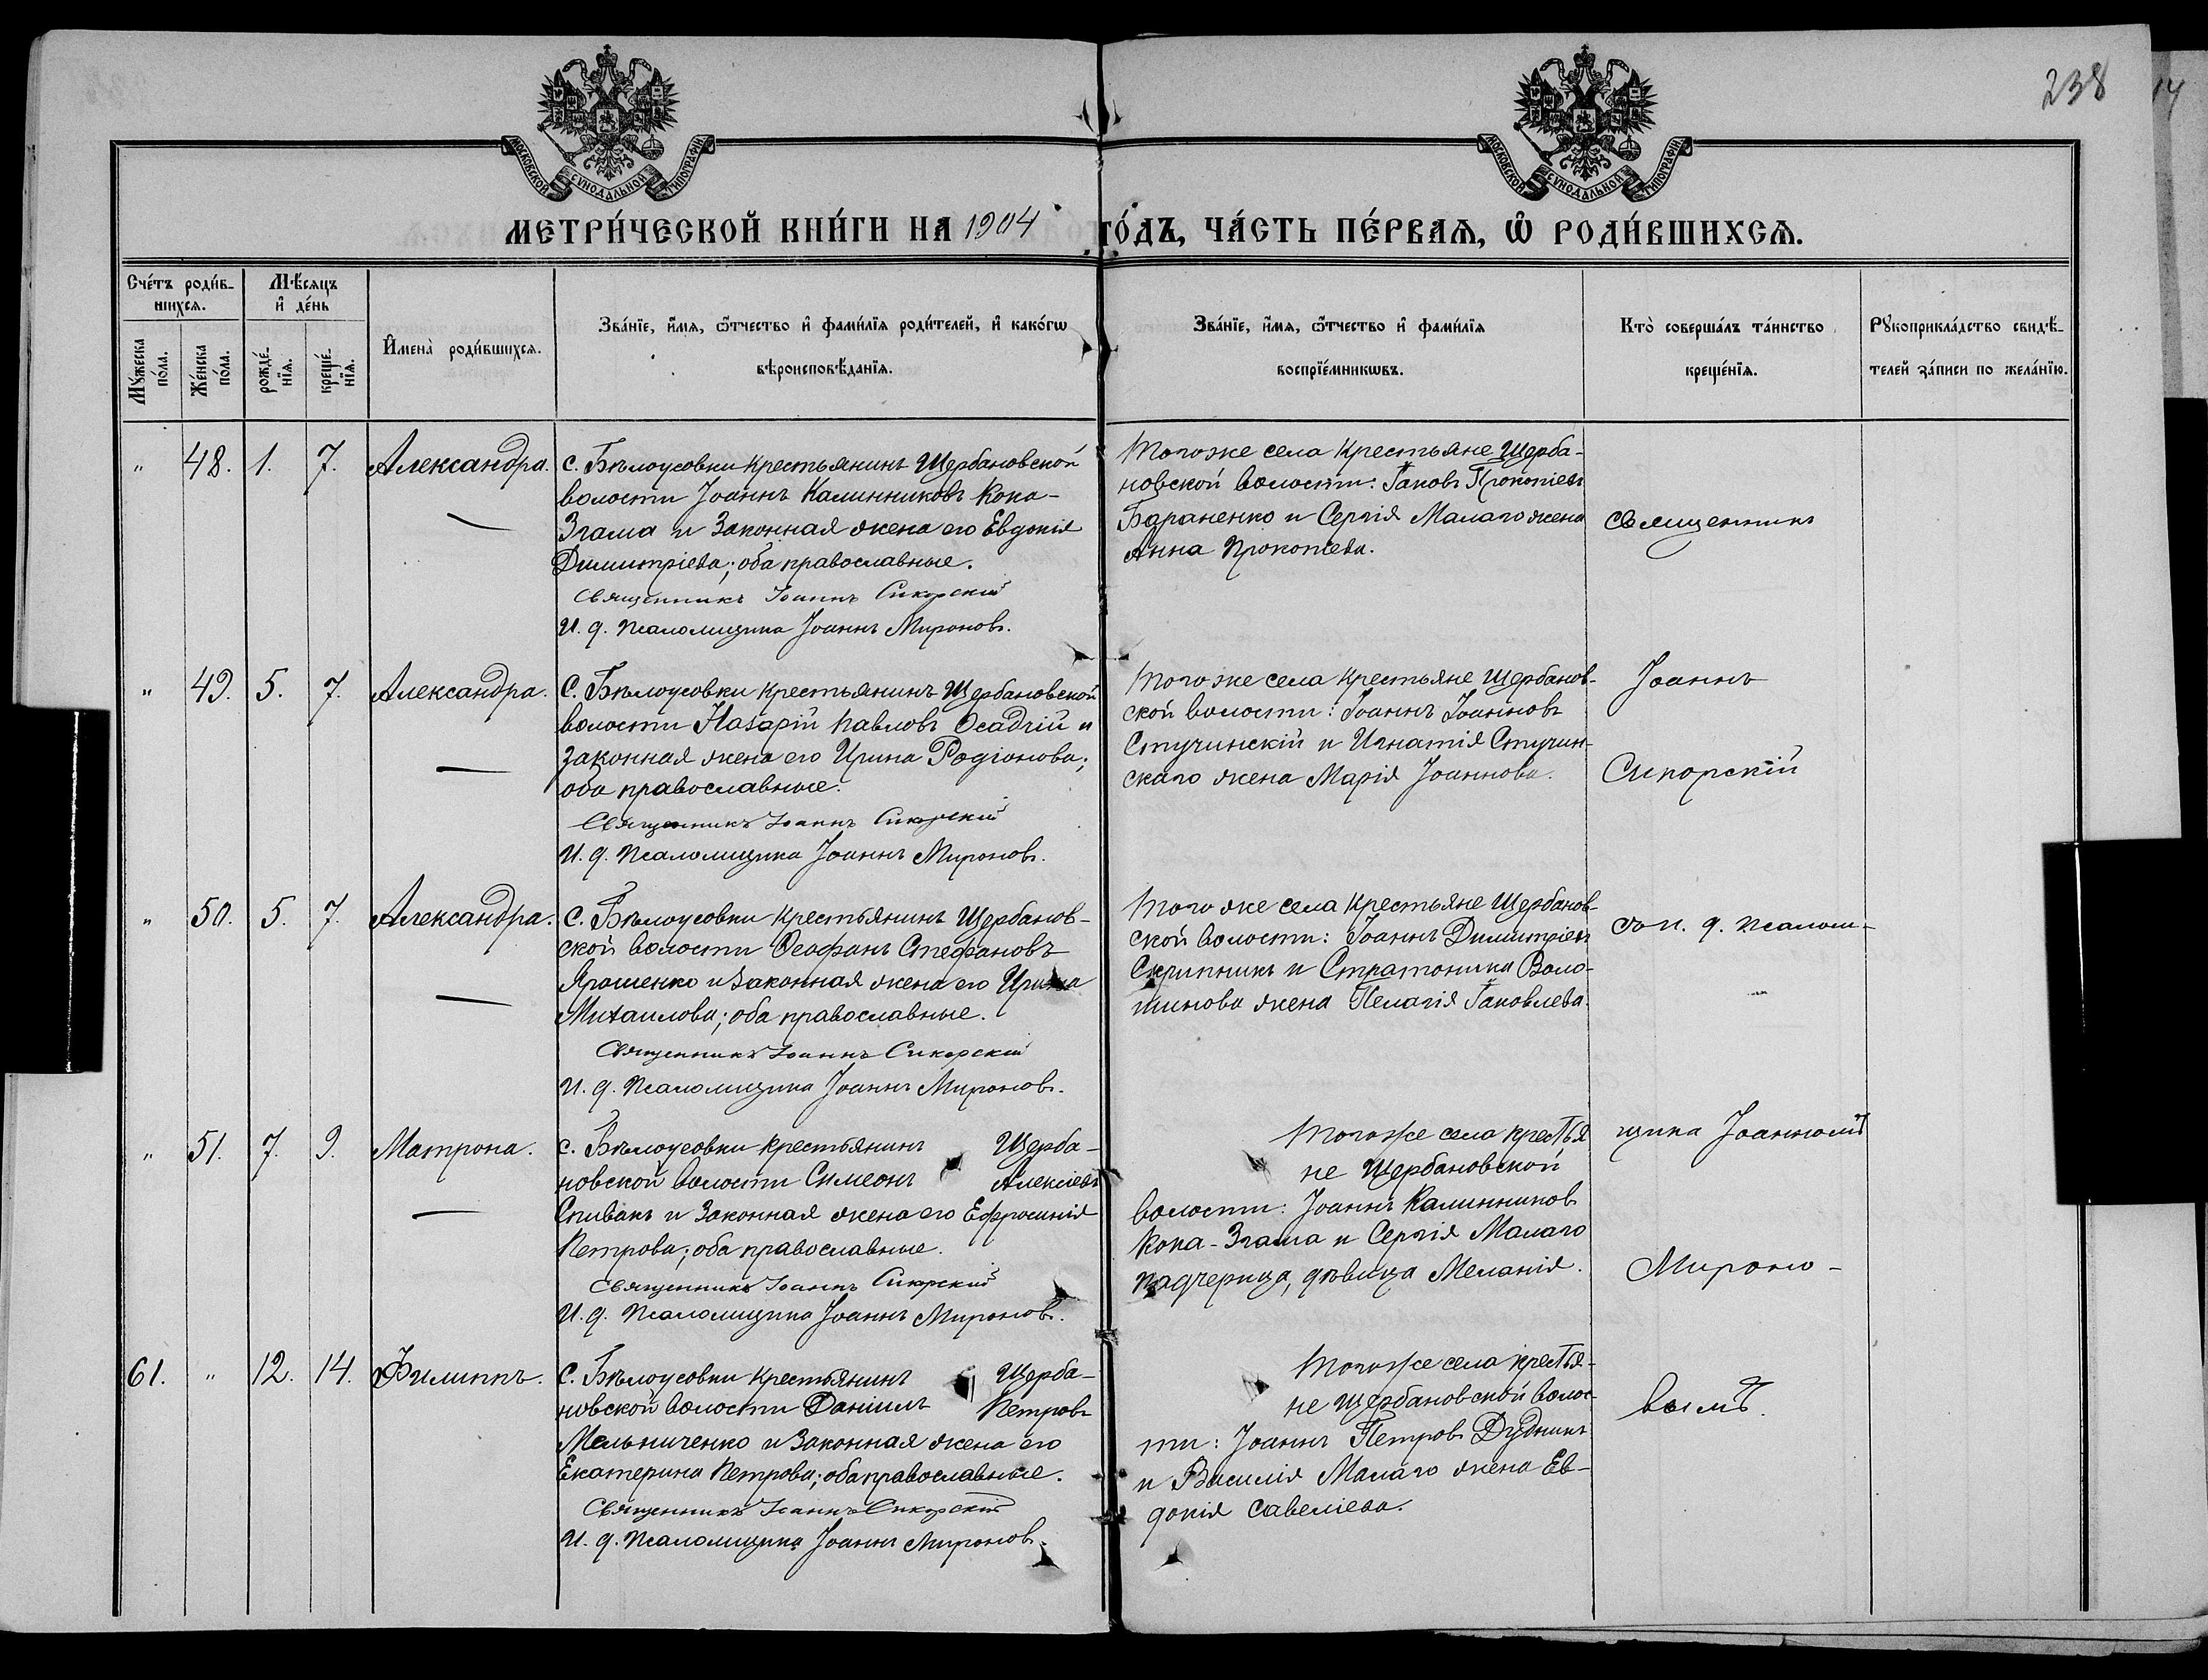 238
МОСКОВСКОЙ СѴНОДАЛЬНОЙ ТИПОГРАФІИ
МОСКОВСКОЙ СѴНОДАЛЬНОЙ ТИПОГРАФІИ
МЕТРИ́ЧЕСКОЙ КНИ́ГИ НА 1904 ГО́ДЪ, ЧА́СТЬ ПЕ́РВАѦ, Ѡ҆ РОДИ́ВШИХСѦ.
Сче́тъ роди́в-
шихсѧ.
Мꙋ́жеска
по́ла.
Же́нска
по́ла.
Мѣ́сѧцъ
и҆ де́нь
рожде́-
нїѧ.
креще́-
нїѧ.
И҆мена̀ роди́вшихсѧ.
Зва́нїе, и҆́мѧ, ѻ҆́тчество и҆ фами́лїѧ роди́телей, и҆ како́гѡ
вѣроисповѣ́данїѧ.
Зва́нїе, и҆́мѧ, ѻ҆́тчество и҆ фами́лїѧ
воспрїе́мникѡвъ.
Кто̀ соверша́лъ та́инство
креще́нїѧ.
Рꙋкоприкла́дство свидѣ́-
телей за́писи по жела́нїю.
" 48. 1. 7. Александра.
с. Бѣлоусовки крестьянинъ Щербановской
волости Іоаннъ Калинниковъ Кока-
Згама и законная жена его Евдокія
Димитріева; оба православные.
Священникъ Іоаннъ Сикорскій
И. д. псаломщика Іоаннъ Мироновъ.
Того же села крестьяне Щерба-
новской волости: Іаковъ Прокопіевъ
Бараненко и Сергія Малаго жена
Анна Прокопіева.
Священникъ
" 49. 5. 7. Александра.
С. Бѣлоусовки крестьянинъ Щербановской
волости Назарій Павловъ Осадчій и
законная жена его Ирина Родіонова;
оба православные.
Священникъ Іоаннъ Сикорскій
И. д. псаломщика Іоаннъ Мироновъ.
Того же села крестьяне Щербанов-
ской волости: Іоаннъ Іоанновъ
Стучинскій и Игнатія Стучин-
скаго жена Марія Іоаннова.
Іоаннъ
Сикорскій
" 50. 5. 7. Александра.
С. Бѣлоусовки крестьянинъ Щербанов-
ской волости Ѳеофанъ Стефановъ
Ярошенко и законная жена его Ирина
Михаилова; оба православные.
Священникъ Іоаннъ Сикорскій
И. д. псаломщика Іоаннъ Мироновъ.
Того же села крестьяне Щербанов-
ской волости: Іоаннъ Димитріевъ
Скрипникъ и Стратоника Воло-
шинова жена Пелагія Іаковлева.
съ и. д. псалом-
" 51. 7. 9. Матрона.
с. Бѣлоусовки крестьянинъ Щерба-
новской волости Симеонъ Алексіевъ
Спивакъ и законная жена его Ефросинія
Петрова; оба православные.
Священникъ Іоаннъ Сикорскій
И. д. псаломщика Іоаннъ Мироновъ.
Того же села крестья
не Щербановской
волости: Іоаннъ Калинниковъ
Кока-Згама и Сергія Малаго
падчерица, дѣвица Меланія.
щика Іоанномъ
Мироно-
61. " 12. 14. Филиппъ.
С. Бѣлоусовки крестьянинъ Щерба-
новской волости Даніилъ Петровъ
Мельниченко и законная жена его
Екатерина Петрова; оба православные.
Священникъ Іоаннъ Сикорскій
И. д. псаломщика Іоаннъ Мироновъ.
Того же села крестья-
не Щербановской волос-
ти: Іоаннъ Петровъ Дудникъ
и Василія Малаго жена Ев-
докія Савеліева.
вымъ.